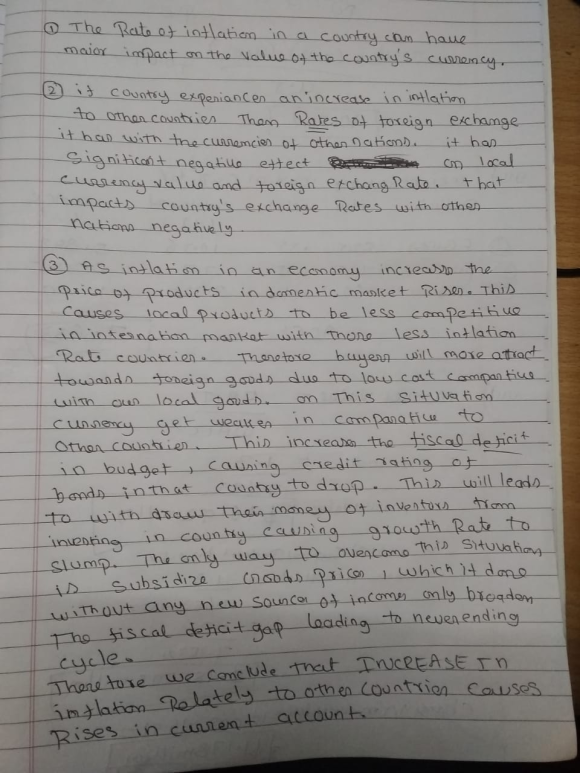 ① The Rate of inflation in a country can have
major impact on the value of the country's currency.
② if country experiances an increase in inflation
to other countries Then Rates of foreign exchange
it has with the currencies of other nations. it has
significant negative effect on local
currency value and foreign exchang Rate. that
impacts country's exchange Rates with other
nations negatively
③ AS inflation in an economy increases the
price of products in domestic market Rises. This
causes local products to be less competitive
in internation market with those less inflation
Rate countries. Therefore buyers will more attract
towards foreign goods due to low cost compartive
with our local goods. on This situvation
currency get weaker in comparative to
other countries. This increases the fiscal deficit
in budget, causing credit rating of
bonds in that country to drop. This will leads
to with draw their money of investors from
investing in country causing growth Rate to
slump. The only way to overcome this situvation
is subsidize Goods prices, which it done
without any new source of income only broaden
The fiscal deficit gap leading to neverending
cycle.
Therefore we conclude that INCREASE In
inflation Relately to other countries causes
Rises in current account.